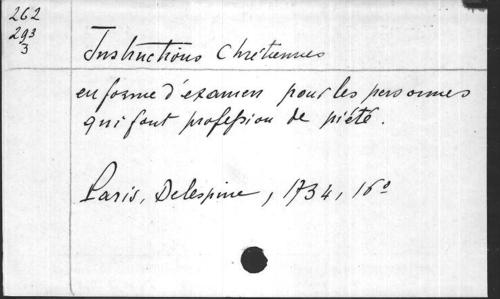 262
293
3
Instructions Chrétiennes
en forme d'examen pour les personnes
qui font profession de piété.
Paris, Delespine, 1734, 16º